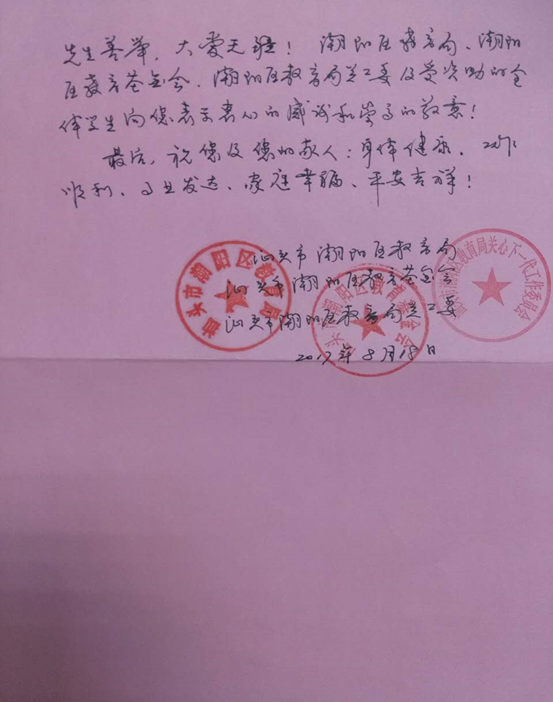 先生善举，大爱无疆！潮阳区教育局、潮阳
区教育基金会、潮阳区教育局关工委及受资助的全
体学生向您表示衷心的感谢和崇高的敬意！
最后，祝您及您的家人：身体健康、工作
顺利、事业发达、家庭幸福、平安吉祥！
汕头市潮阳区教育局
汕头市潮阳区教育基金会
汕头市潮阳区教育局关工委
2017年8月18日
汕头市潮阳区教育局
头市潮阳区教育基金会
教育局关心下一代工作委员会